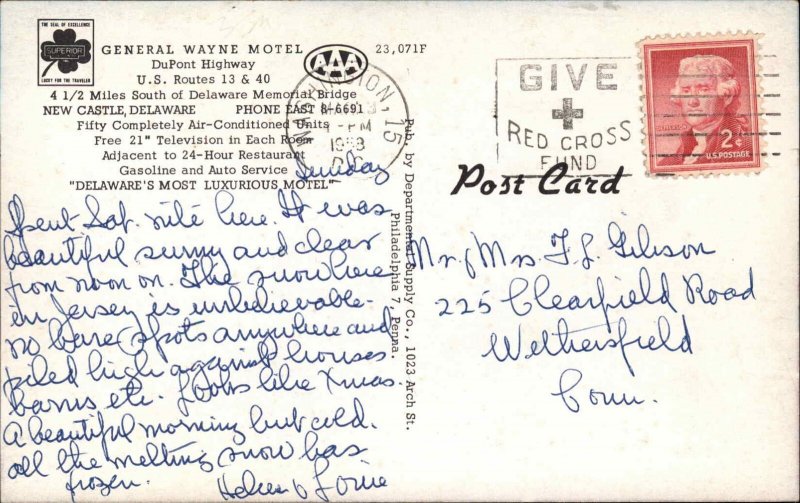 THE SEAL OF EXCELLENCE
SUPERIOR
LUCKY FOR THE TRAVELER
GENERAL WAYNE MOTEL
AAA
23,071F
DuPont Highway
U.S. Routes 13 & 40
4 1/2 Miles South of Delaware Memorial Bridge
NEW CASTLE, DELAWARE PHONE EAST 8-6691
Fifty Completely Air-Conditioned Units
Free 21" Television in Each Room
Adjacent to 24-Hour Restaurant
Gasoline and Auto Service
"DELAWARE'S MOST LUXURIOUS MOTEL"
WASHINGTON, 15
PM
1958
D.C.
GIVE
RED CROSS
FUND
JEFFERSON 2¢
U.S. POSTAGE
Post Card
Pub. by Departmental Supply Co., 1023 Arch St.
Philadelphia 7, Penna.
Sunday
Spent Sat. nite here. It was
beautiful sunny and clear
from noon on. The snow here
in Jersey is unbelievable-
no bare spots anywhere and
piled high against houses
barns etc. Looks like Xmas.
A beautiful morning but cold.
all the melting snow has
frozen.
Mr & Mrs F. L. Gibson
225 Clearfield Road
Wethersfield
Conn.